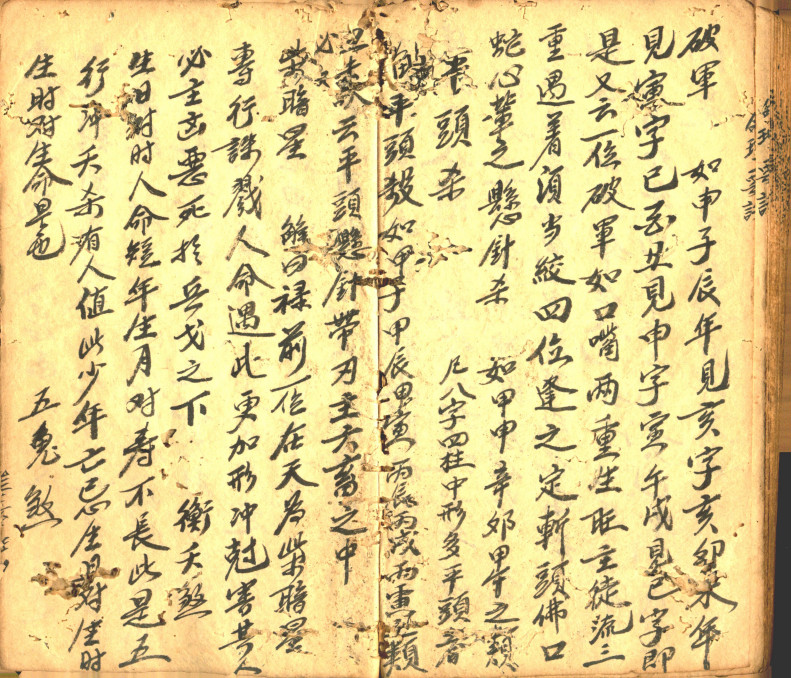 破軍 如申子辰年見亥字亥卯未年
見寅字巳酉丑見申字寅午戌見巳字即
是又云一位破軍如口嘴兩重生旺主徒流三
重遇着須当絞四位逢之定斬頭佛口
蛇心葷之懸針杀 如甲申辛卯甲午之類
平頭杀 凡八字四柱中形多平頭者
平頭殺如甲子甲辰甲寅丙辰丙戌丙寅類
云平頭懸針帶刃主六畜之中
必
紫暗星 解曰禄前一位在天為紫暗星
專行誅戮人命遇此更加形冲尅害其人
必主凶惡死於兵戈之下 衡夭煞
生日对时人命短年生月对寿不長此是五
行冲夭杀有人值此少年亡忌生日对生时
生时对生命是也 五鬼煞